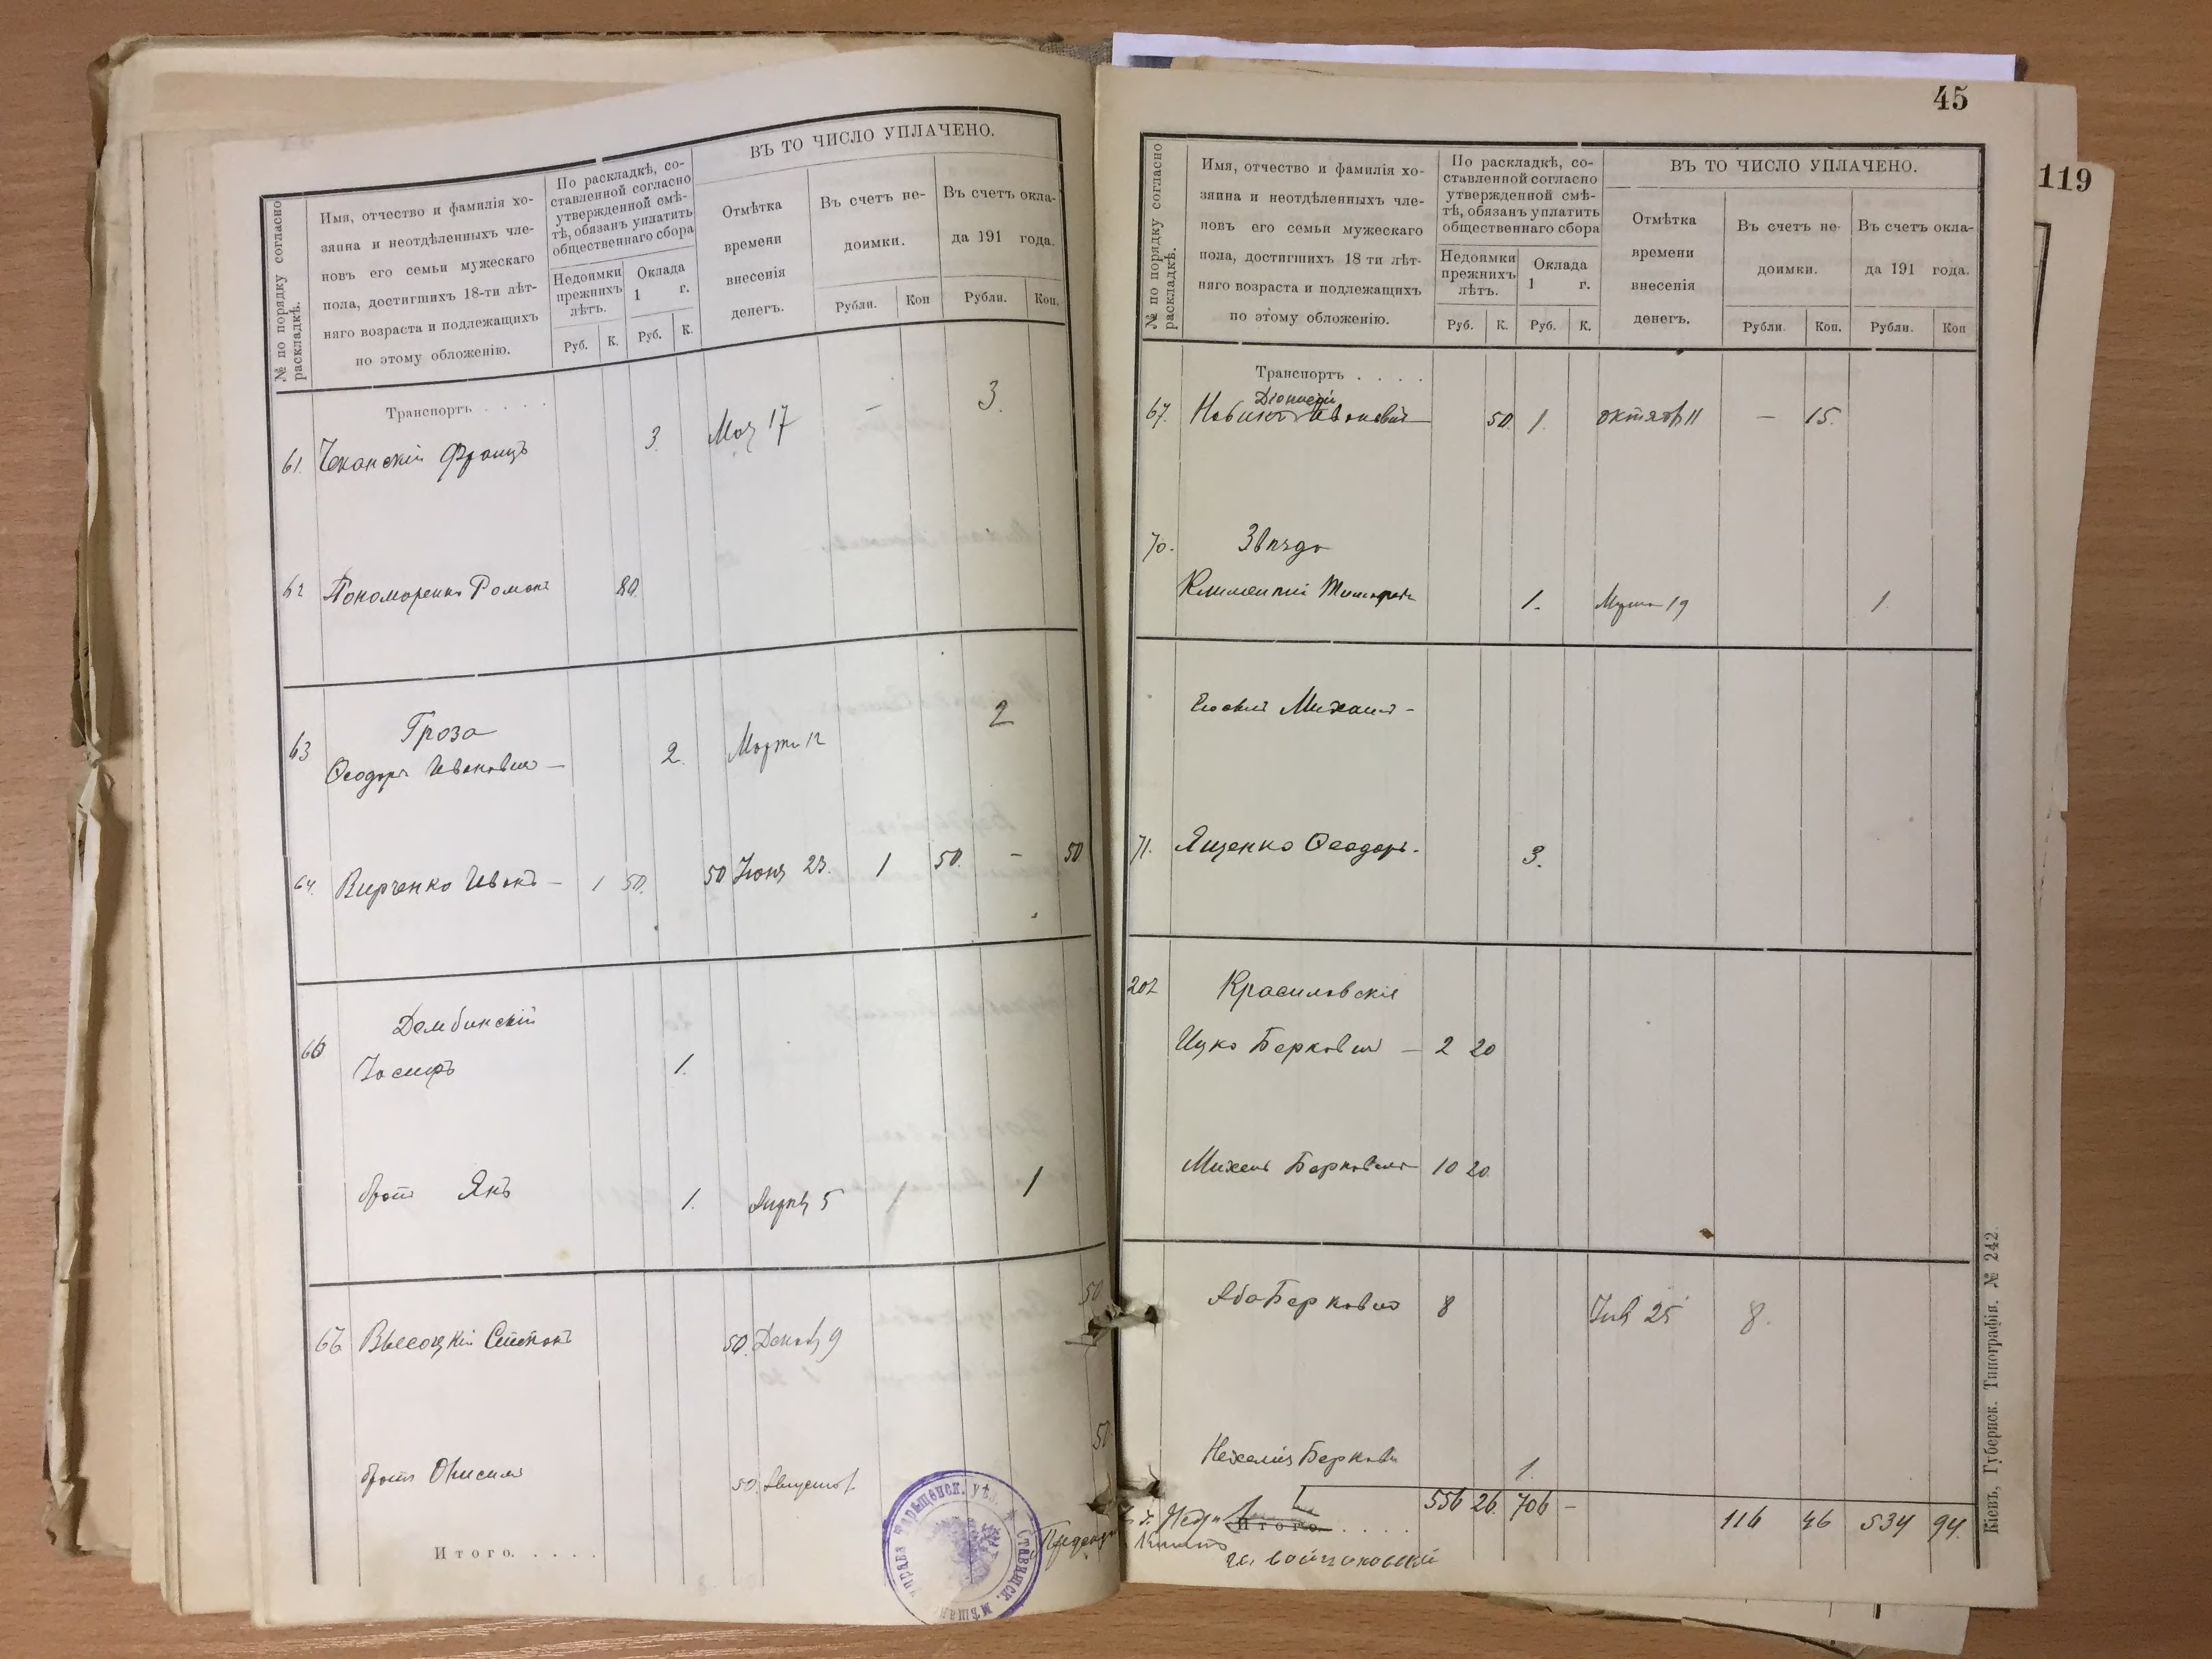 ВЪ ТО ЧИСЛО УПЛАЧЕНО.
№ по порядку согласно
раскладкѣ.
Имя, отчество и фамилія хо-
зяина и неотдѣленныхъ чле-
новъ его семьи мужескаго
пола, достигшихъ 18-ти лѣт-
няго возраста и подлежащихъ
по этому обложенію.
По раскладкѣ, со-
ставленной согласно
утвержденной смѣ-
тѣ, обязанъ уплатить
общественнаго сбора
Недоимки
прежнихъ
лѣтъ.
Оклада
1 г.
Руб. К. Руб. К.
Отмѣтка
времени
внесенія
денегъ.
Въ счетъ не-
доимки.
Рубли. Коп
Въ счетъ окла-
да 191 года.
Рубли. Коп.
Транспортъ . . . .
61. Чеканскій Францъ 3 Мая 17 — 3.
62 Пономаренко Романъ 80.
63 Гроза
Ѳеодоръ Ивановичъ — 2. Марта 12 2
64. Вирченко Иванъ — 1 50. 50 Іюня 23. 1 50. — 50
66 Домбинскій
Іосифъ 1.
братъ Янъ 1. 5 1 1
Высоцкій 50. Декаб 9 50
братъ 50. Августа 50
Итого. . . . .
45
119
ВЪ ТО ЧИСЛО УПЛАЧЕНО.
№ по порядку согласно
раскладкѣ.
Имя, отчество и фамилія хо-
зяина и неотдѣленныхъ чле-
новъ его семьи мужескаго
пола, достигшихъ 18 ти лѣт-
няго возраста и подлежащихъ
по этому обложенію.
По раскладкѣ, со-
ставленной согласно
утвержденной смѣ-
тѣ, обязанъ уплатить
общественнаго сбора
Недоимки
прежнихъ
лѣтъ.
Оклада
1 г.
Руб. К. Руб. К.
Отмѣтка
времени
внесенія
денегъ.
Въ счетъ не-
доимки.
Рубли. Коп.
Въ счетъ окла-
да 191 года.
Рубли. Коп
Транспортъ . . . .
Діонисій
67. Ивановичъ 50. 1. октяб 11 — 15.
70. Звѣзда
Климентій 1. Марта 19 1
Михаилъ -
71. Ященко Ѳеодоръ. 3.
202 Красиловскіе
Ицко Берковичъ — 2 20
Михель Берковичъ 10 20
Аба Берковичъ 8 Янв 25 8.
Беркови 1.
Итого . . . . 556 26 706 - 116 46 534 94.
Кіевъ, Губернск. Типографія. № 242.